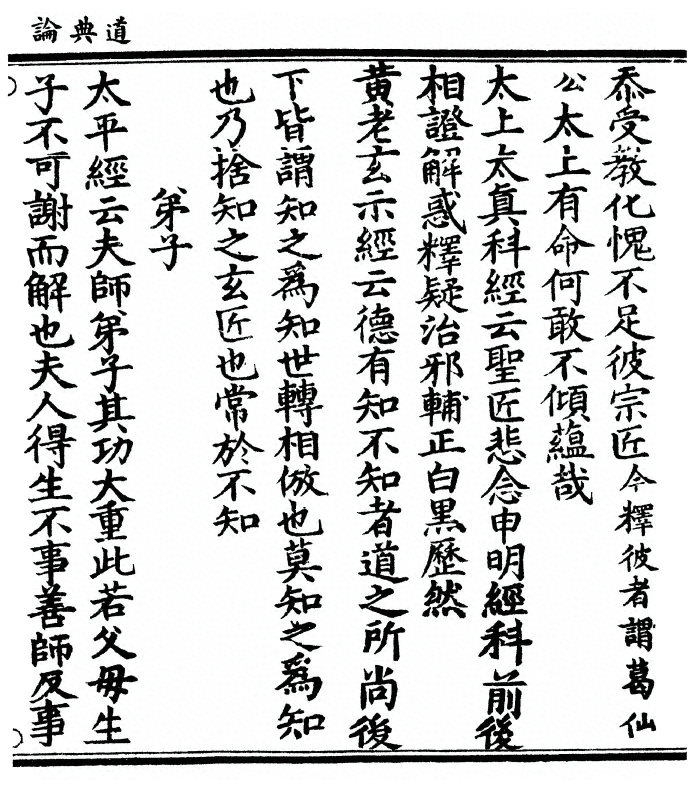 道典論
忝受教化愧不足彼宗匠今釋彼者謂葛仙
公太上有命何敢不傾蘊哉
太上太真科經云聖匠悲念申明經科前後
相證解惑釋疑治邪輔正白黒歷然
黃老玄示經云德有知不知者道之所尚後
下皆謂知之爲知世轉相倣也莫知之爲知
也乃捨知之玄匠也常於不知
弟子
太平經云夫師弟子其功大重此若父母生
子不可謝而解也夫人得生不事善師反事